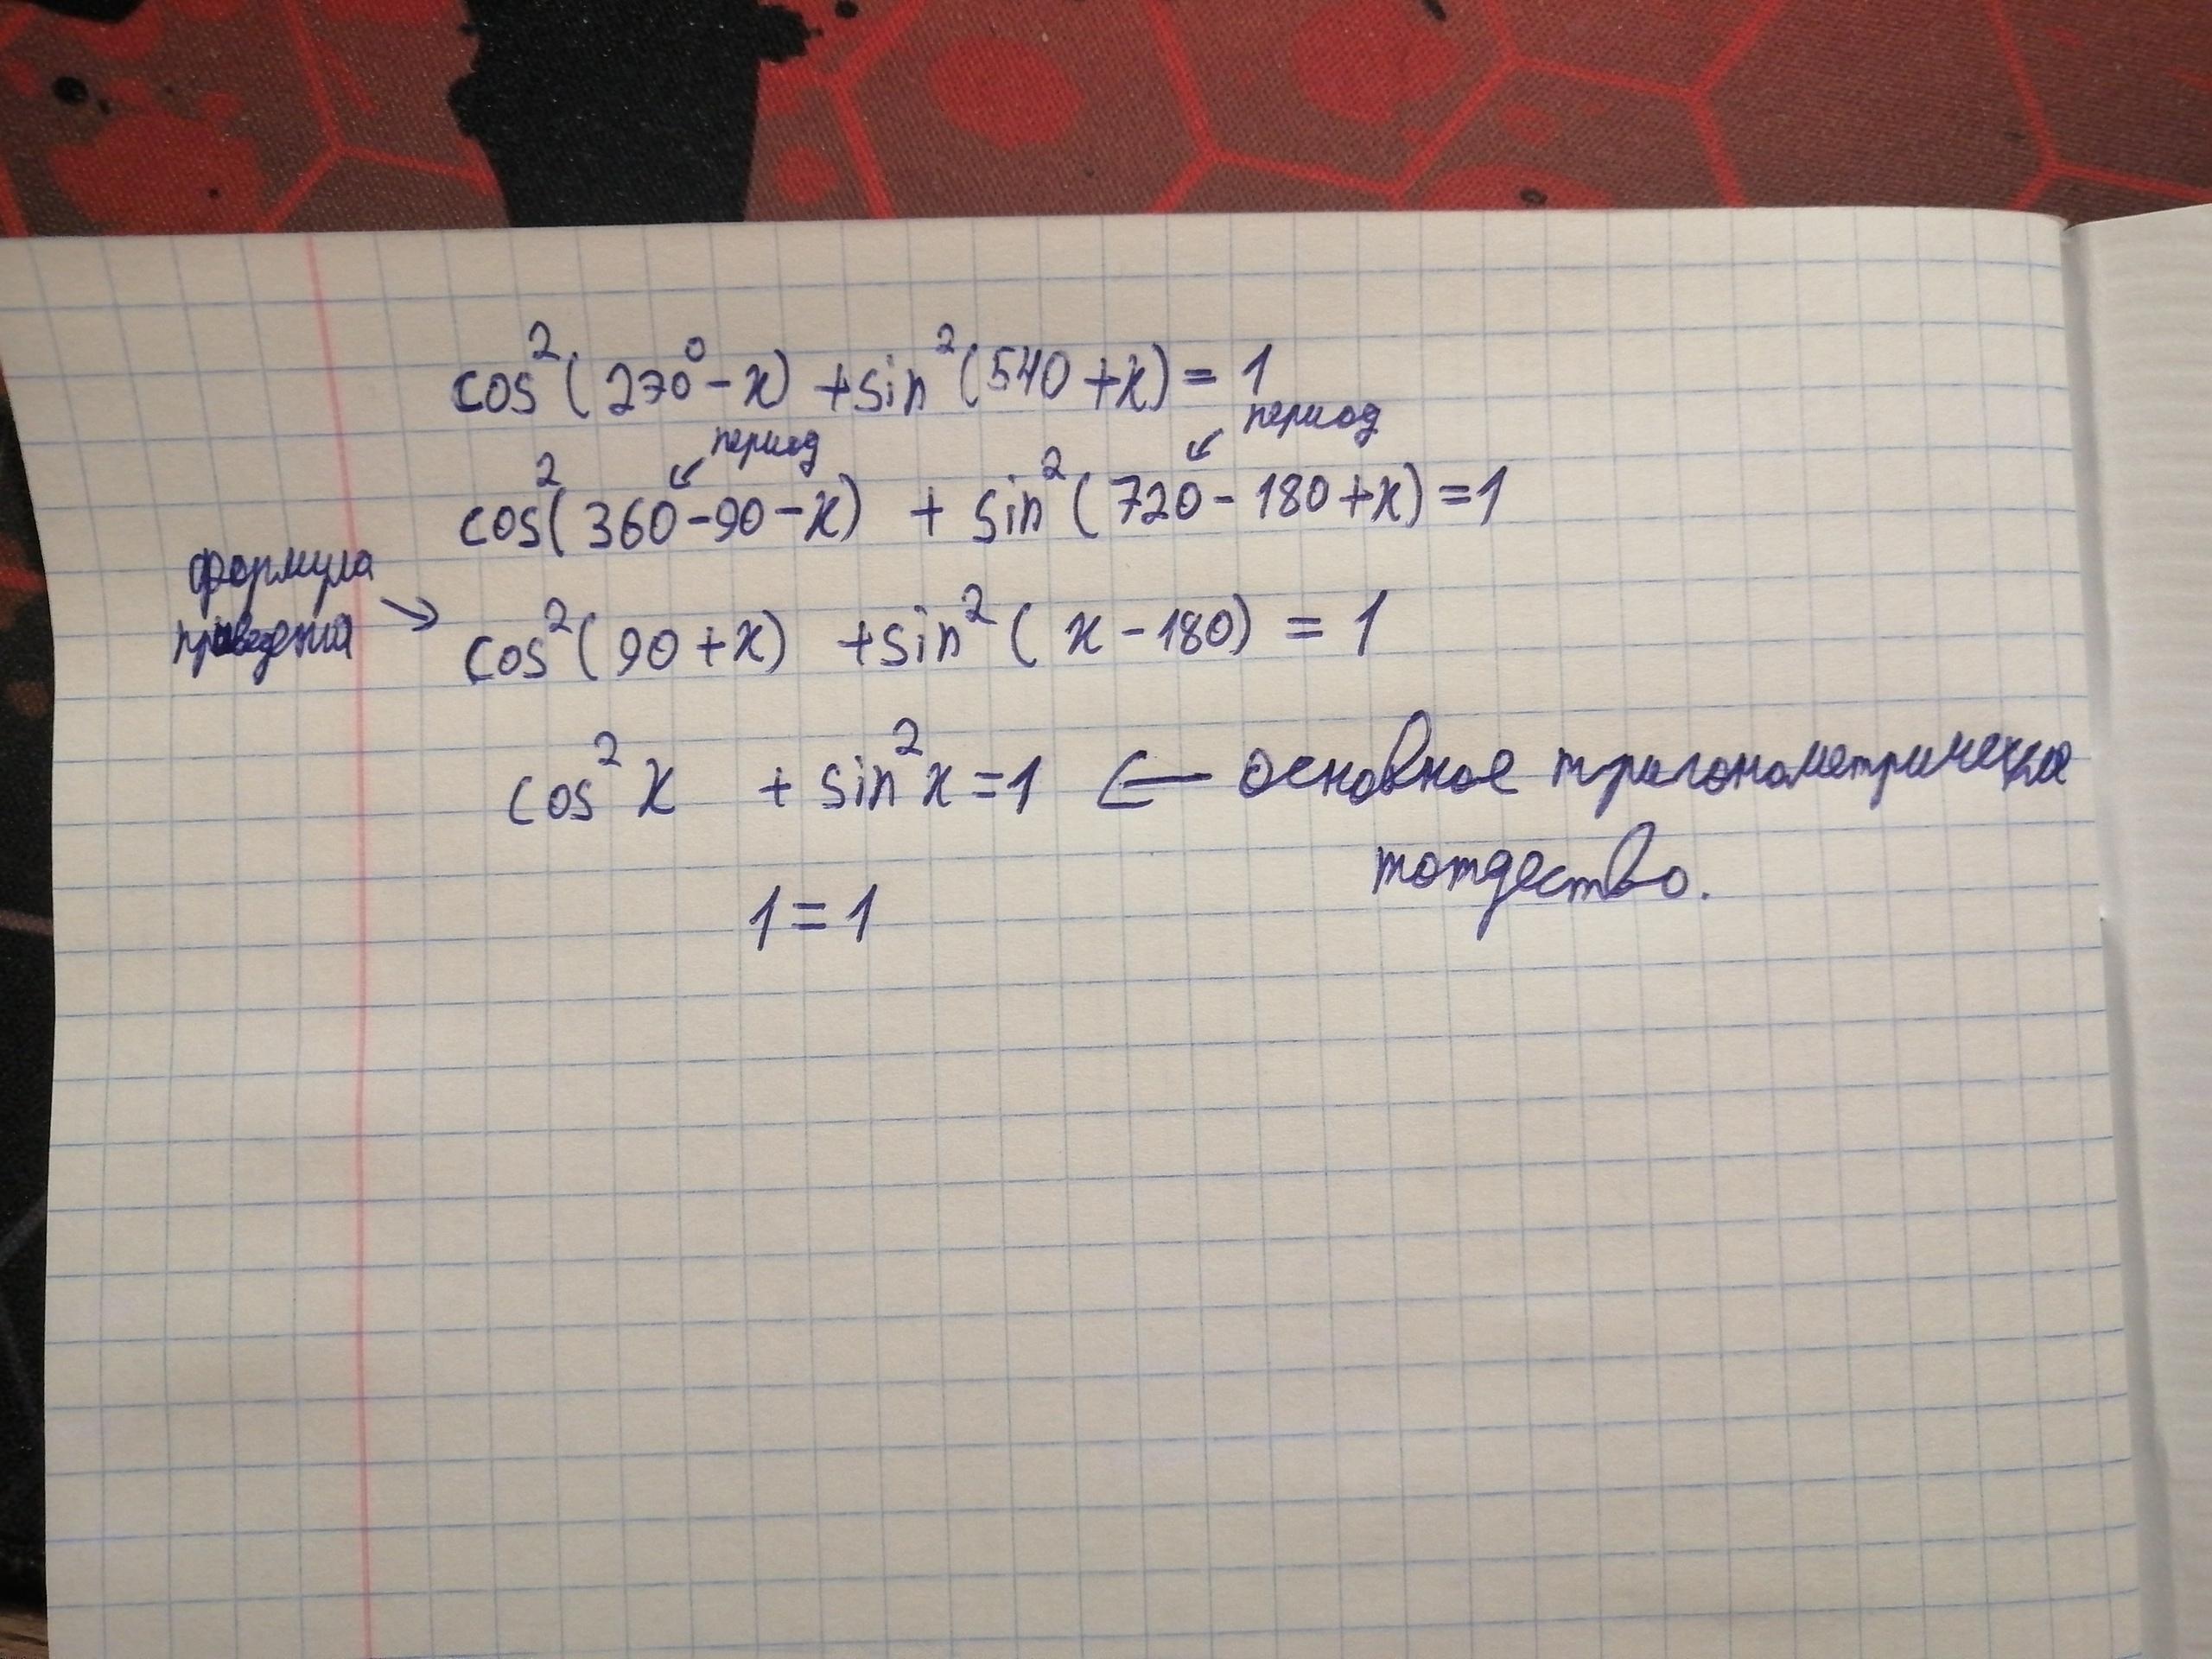 cos²(270°-x) +sin²(540+x)=1
период период
cos²(360-90-x) + sin²(720-180+x)=1
формула
приведения → cos²(90+x) +sin²(x-180) = 1
cos²x + sin²x=1 ← основное тригонометрическое
тотдество.
1=1